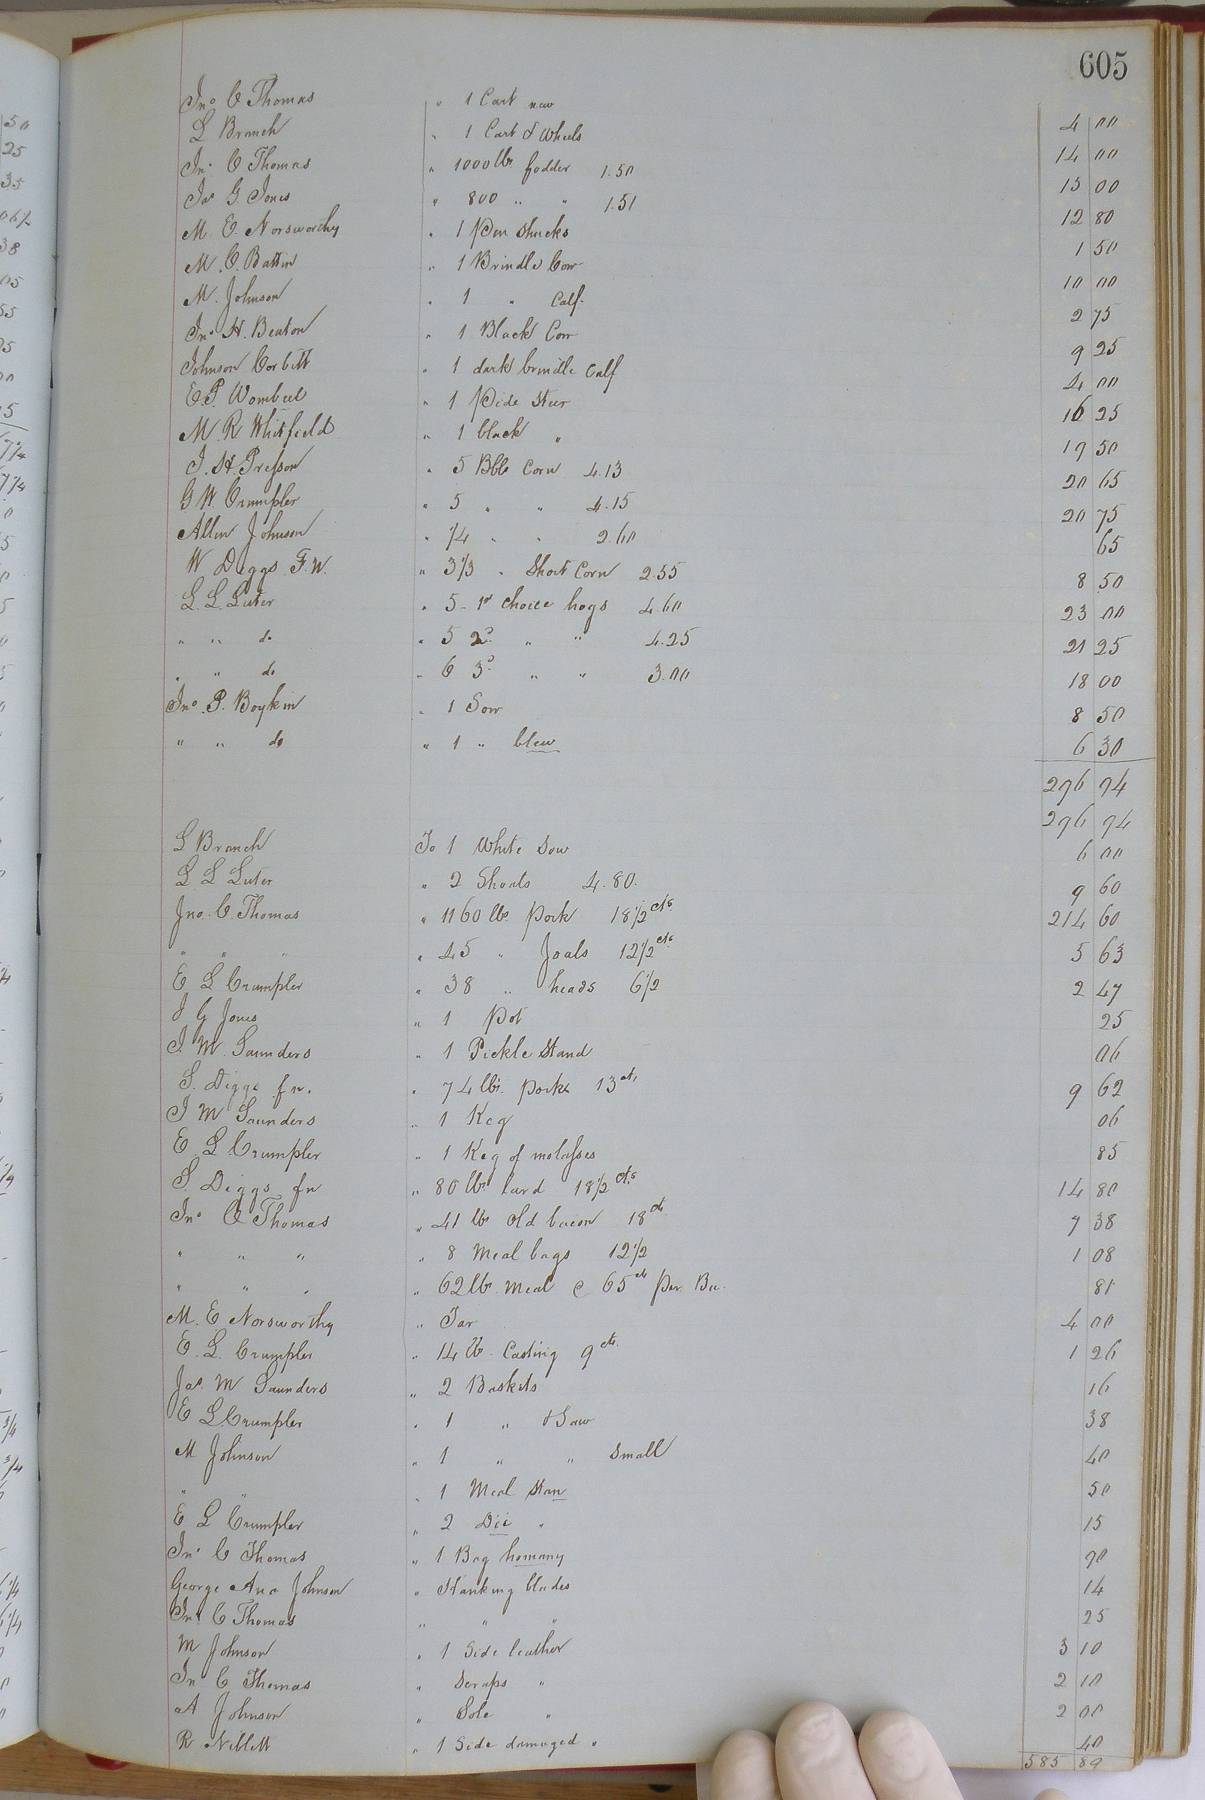 605
Jno C Thomas " 1 Cart new 4 00
L Branch " 1 Cart & Wheels 14 00
Jno C Thomas " 1000 lbs fodder 1.50 15 00
Jas G Jones " 800 " " 1.51 12 80
M. E. Norsworthy " 1 Pen Shucks 1 50
M. C. Battin " 1 Brindle Cow 10 00
M. Johnson " 1 " Calf 2 75
Jno H. Beaton " 1 Black Cow 9 25
Johnson Corbitt " 1 dark brindle Calf 4 00
E. P. Wombul " 1 Pide Steer 16 25
M. R Whitfield " 1 black " 19 50
J. H. Presson " 5 Bbls Corn 4.13 20 65
G W. Crumpler " 5 " " 4.15 20 75
Allen Johnson " 1/4 " " 2.60 65
W Diggs F.N. " 3 1/3 " Short Corn 2.55 8 50
L. L. Luter " 5 - 1st choice hogs 4.60 23 00
" " do " 5 2d " " 4.25 21 25
" " do " 6 3d " " 3.00 18 00
Jno P. Boykin " 1 Sow 8 50
" " do " 1 " blew 6 30
296 94
296 94
L Branch To 1 White Sow 6 00
L L Luter " 2 Shoats 4.80 9 60
Jno. C. Thomas " 1160 lbs Pork 18 1/2 cts 214 60
" " " " 45 " Joals 12 1/2 cts 5 63
E L Crumpler " 38 " heads 6 1/2 2 47
J G Jones " 1 Pot 25
J. M. Saunders " 1 Pickle Stand 06
S. Diggs fn. " 74 lbs. Pork 13 cts 9 62
J M Saunders " 1 Keg 06
E. L Crumpler " 1 Keg of molasses 85
S. Diggs fn " 80 lbs lard 18 1/2 cts 14 80
Jno C Thomas " 41 lbs Old bacon 18 cts 7 38
" " " " 8 Meal bags 12 1/2 1 08
" " " " 62 lbs. meal @ 65 cts Per Bu. 81
M. E Norsworthy " Tar 4 00
E. L. Crumpler " 14 lb. Casting 9 cts. 1 26
Jas. M Saunders " 2 Baskets 16
E L Crumpler " 1 " & Saw 38
M Johnson " 1 " " Small 40
" " " 1 Meal Stan 50
E L Crumpler " 2 Dii " 15
Jno C Thomas " 1 Bag homany 90
George Ana Johnson " Hanking blades 14
Jno C Thomas " " " 25
M Johnson " 1 Side leather 3 10
Jno C Thomas " Scraps " 2 10
A Johnson " Sole " 2 00
R Niblett " 1 Side damaged " 40
585 89